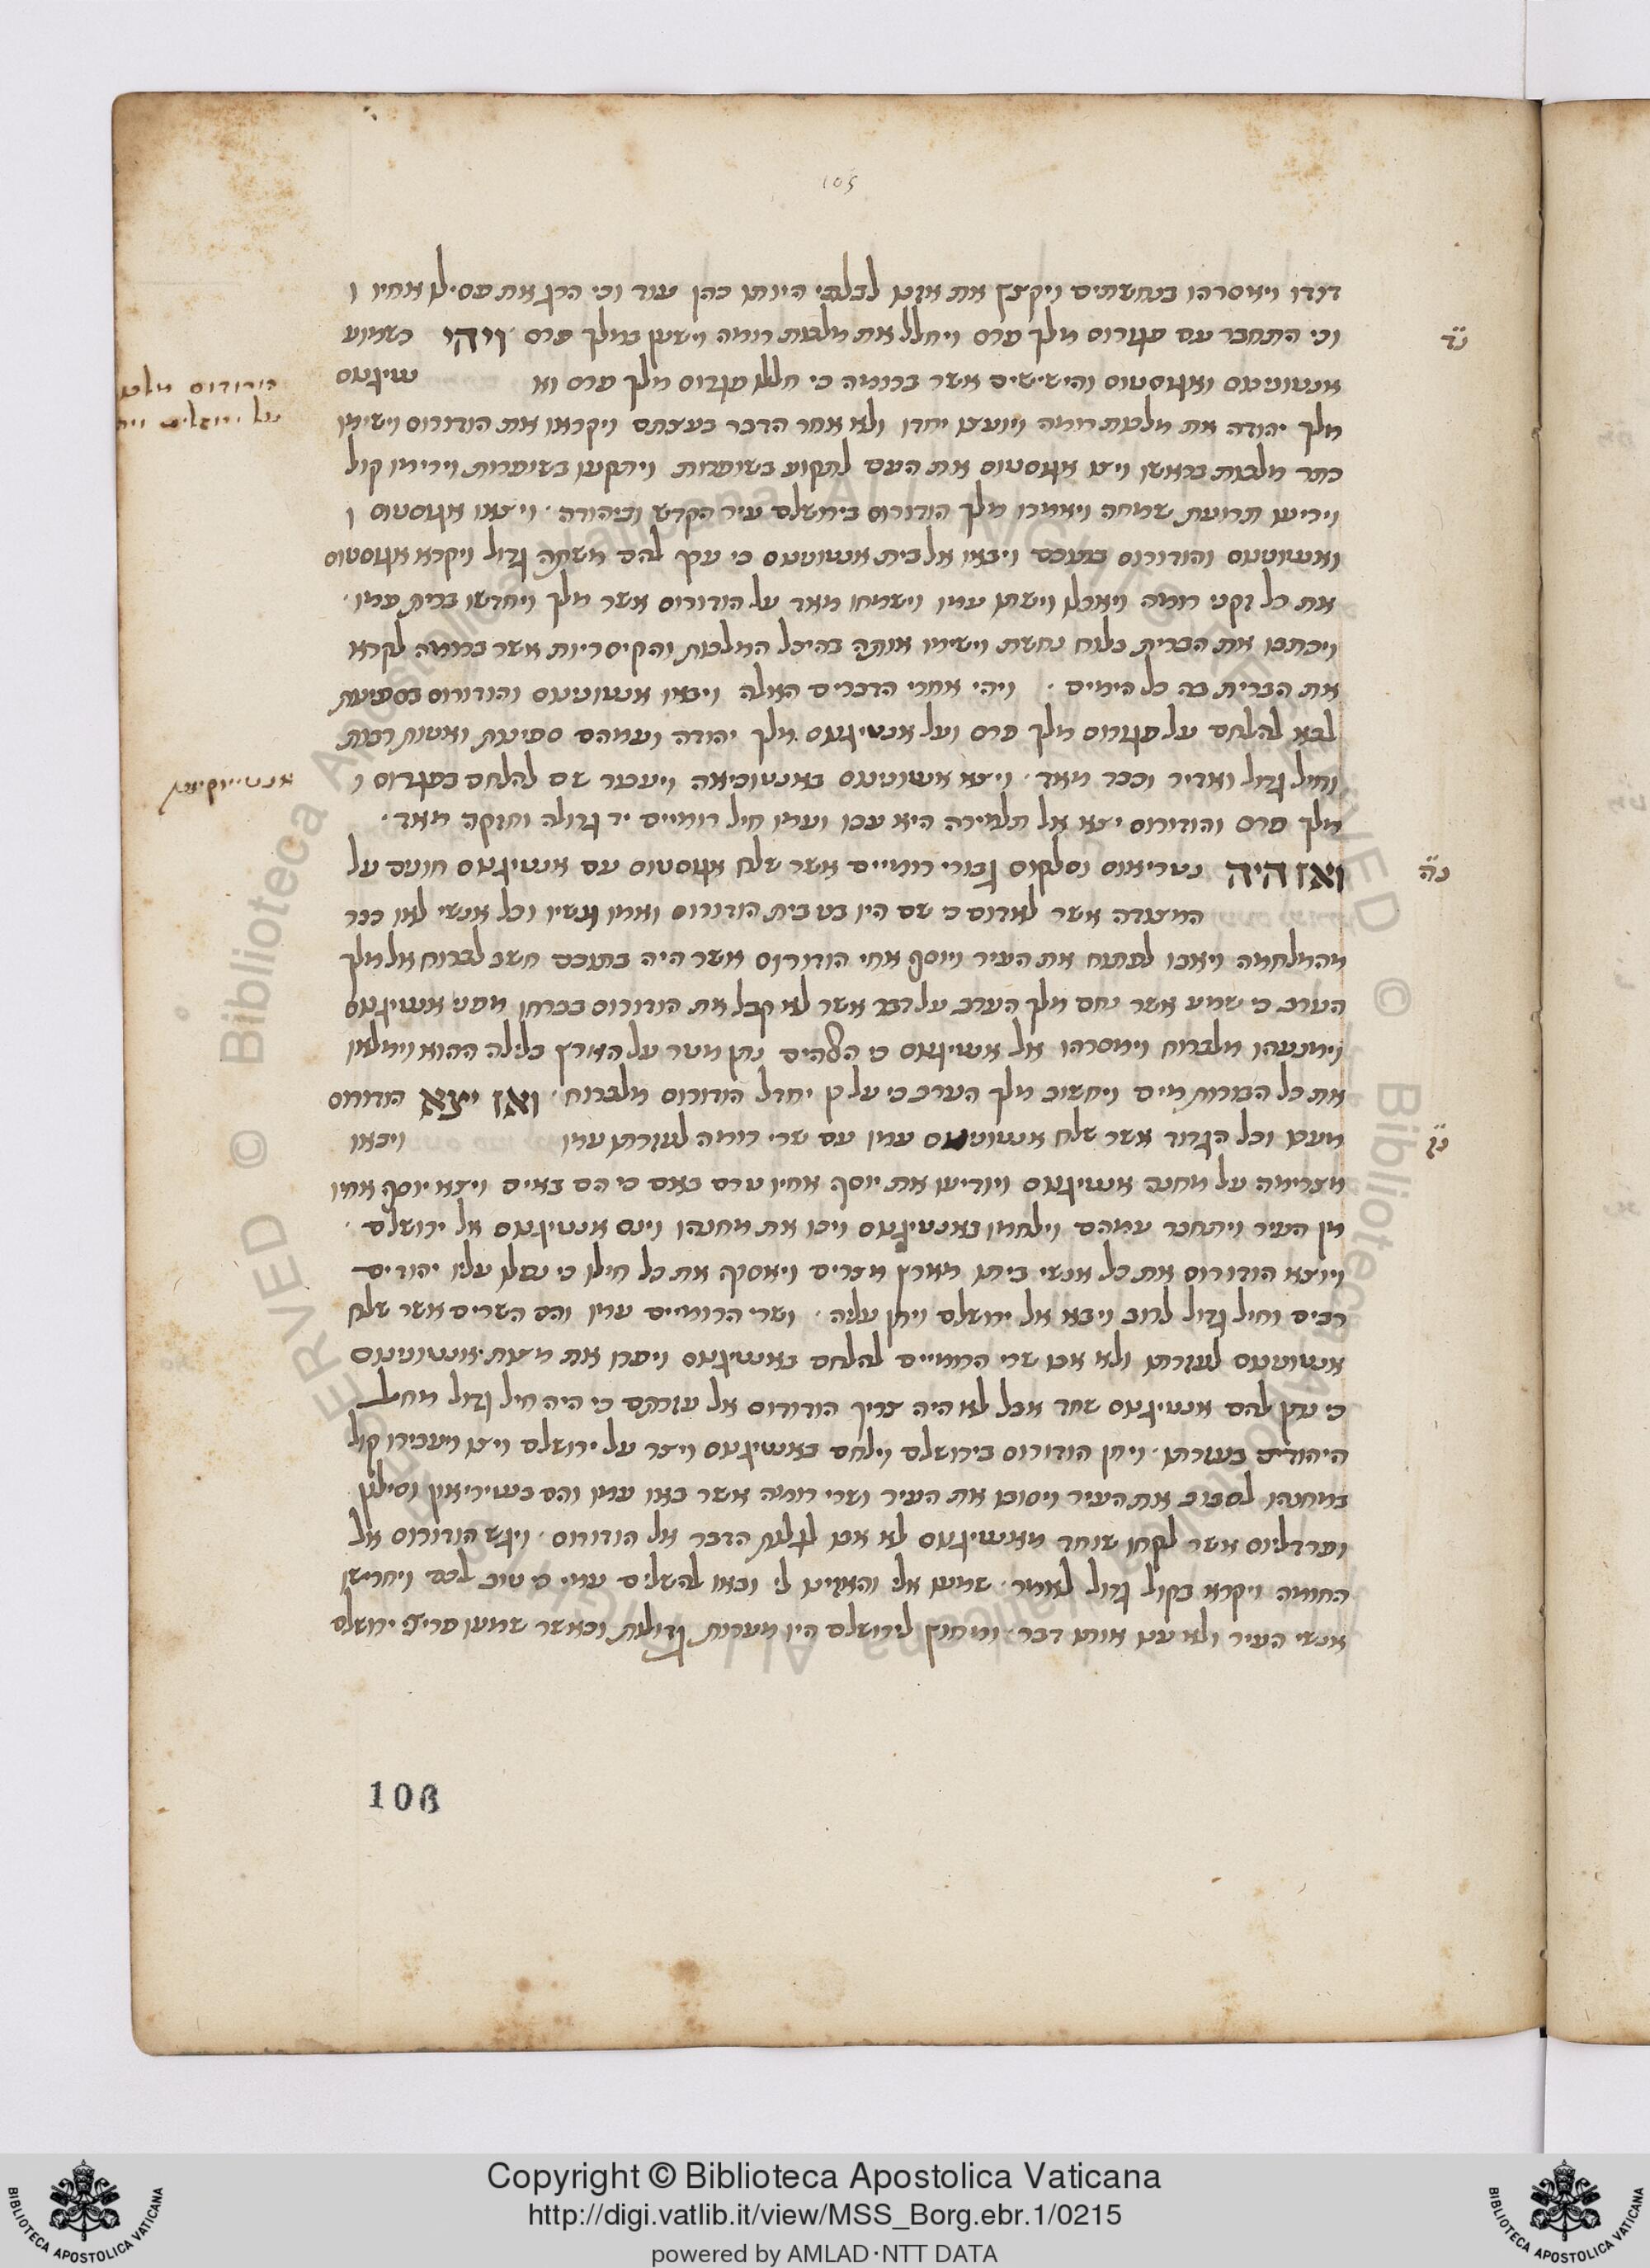 105
דודו ויאסרהו בנחשתים ויקצץ את אזנו לבלתי היותו כהן עוד וכי הרג את פסילו אחיו ו
וכי התחבר עם פגורוס מלך פרס ויחלל את מלכות רומה וישען במלך פרס ׳ ויהי כשמוע
נד
אנטוניוס ואגוסטוס והישישים אשר ברומה כי חללו פגרוס מלך פרס וא שיגנוס
הורודוס מלך
על ירושלים
מלך יהודה את מלכות רומה ויועצו יחדו ולא אחר הדבר בעצתם ויקראו את הורודוס וישימו
כתר מלכות בראשו ויצו אגוסטוס את העם לתקוע בשופרות ויתקעו בשופרות וירימו קול
ויריעו תרועת שמחה ויאמרו מלך הורודוס בירושלם עיר הקדש וביהודה ׳ ויצאו אגוסטוס ו
ואנטוניוס והורודוס ויבאו אל בית אנטוניוס כי ערך להם משתה גדול ויקרא אגוסטוס
את כל זקני רומה ויאכלו וישתו עמו וישמחו מאד על הורודוס אשר מלך ויחדשו ברית עמו ׳
ויכתבו את הברית בלוח נחשת וישימו אותה בהיכל המלכות והקיסריות אשר ברומה לקרא
את הברית בה כל הימים ׳ ויהי אחרי הדברים האלה ויבאו אנטוניוס והורודוס בספינות
לבא להלחם על פגורוס מלך פרס ועל אנטיגנוס מלך יהודה ועמהם ספינות ואניות רבות
וחיל גדול ואדיר וכבד מאד ׳ ויצא אנטוניוס באנטוכיאה ויעבור שם להלחם בפגרוס ו
מלך פרס והורודוס יצא אל תלמירה היא עכו ועמו חיל רומיים יד גדולה וחזקה מאד ׳
ואז היה גבורי רומיים אשר שלח אגוסטוס עם אנטיגנוס חונים על
נה
המצודה אשר לאדום כי שם היו בני בית הורודוס ואמו ונשיו וכל אנשי לאו כבר
מהמלחמה ויאבו לפתוח את העיר ויוסף אחי הורודוס אשר היה בתוכם חשב לברוח אל מלך
הערב כי שמע אשר נחם מלך הערב על דבר אשר לא קבל את הורודוס בברחו מפני אנטיגנוס
וימנעהו מלברוח וימסרהו אל אנטיגנוס כי האלהים נתן מטר על הארץ בלילה ההוא וימלאו
את כל הבורות מים ויחשוב מלך הערב כי על כן יחדל הורודוס מלברוח ׳ ואז יצא הורודוס
מעכו וכל הגדוד אשר שלח אנטוניוס עמו עם שרי רומה לעזרתו עמו ויבאו
נו
מצרימה על מחנה אנטיגנוס ויודיעו את יוסף אחיו טרם באם כי הם באים ויצא יוסף אחיו
מן העיר ויתחבר עמהם וילחמו באנטיגנוס ויכו את מחנהו וינס אנטיגנוס אל ירושלם ׳
ויוצא הורודוס את כל אנשי ביתו מארץ מצרים ויאסוף את כל חילו כי נפלו עליו יהודים
רבים וחיל גדול לרוב ויבא אל ירושלם ויחן עליה ׳ ושרי הרומיים עמו והם השרים אשר שלח
אנטוניוס לעזרתו ולא אבו שרי הרומיים להלחם באנטיגנוס ויפרו את מצות אנטוניוס
כי נתן להם אנטיגנוס שחד אבל לא היה צריך הורודוס אל עזרתם כי היה חיל גדול מחיל
היהודים בעזרתו ׳ ויחן הורודוס בירושלם וילחם באנטיגנוס ויצר על ירושלם ויצו ויעבירו קול
במחנהו לסבוב את העיר ויסובו את העיר ושרי רומה אשר באו עמו והם
אשר לקחו שוחד מאנטיגנוס לא אבו לגלות הדבר אל הורודוס ׳ ויגש הורודוס אל
החומה ויקרא בקול גדול לאמר ׳ שמעו אלי והאזינו לי ובאו להשלים עמי כי טוב לכם ויחרישו
אנשי העיר ולא ענו אותו דבר ׳ ומחוץ לירושלם היו מערות גדולות וכאשר שמעו פריצי ירושלם
106
Copyright © Biblioteca Apostolica Vaticana
http://digi.vatlib.it/view/MSS_Borg.ebr.1/0215
powered by AMLAD·NTT DATA
BIBLIOTECA APOSTOLICA VATICANA
BIBLIOTECA APOSTOLICA VATICANA